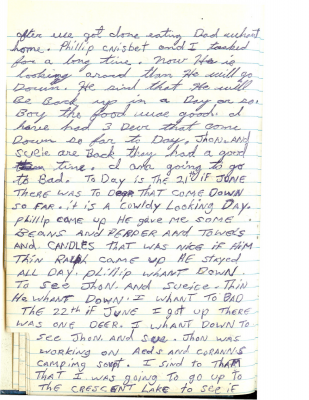 after we got done eating Dad whant
home. Phillip cnisbet and I tacked
for a long time. Now He is
looking around than He will go
Down. He sind that He will
Be Back up in a Day or so.
Boy the food was good. I
have had 3 Deer that come
Down so far to Day. Jhon. AND
ScReie are Back they had a good
time. I am going to go
to Bad. To Day is THE 21st if JUNE
THERE WAS TO DeeR THAT COME DOWN
SO FAR. it is A COWLDY Looking DAY.
phillip come up He gave me some
BEANS AND PEPPER AND TOWELS
AND CANDLES THAT WAS NICE if HIM
THIN RALPH CAME up HE STAYED
ALL DAY. pLillip WHANT DOWN.
To see JHON. AND Sueice. THIN
He WHANT DOWN. I WHANT TO BAD
THE 22th if JUNE I got up THERE
WAS ONE DEER. I WHANT DOWN TO
see JHON. and Sue. JHON WAS
WORKING ON AEDS and CORANNS
CAMPING SOUPT. I SIND TO THAM
THAT I WAS GOING TO GO UP TO
THE CRESCENT LAKE TO SEE IF